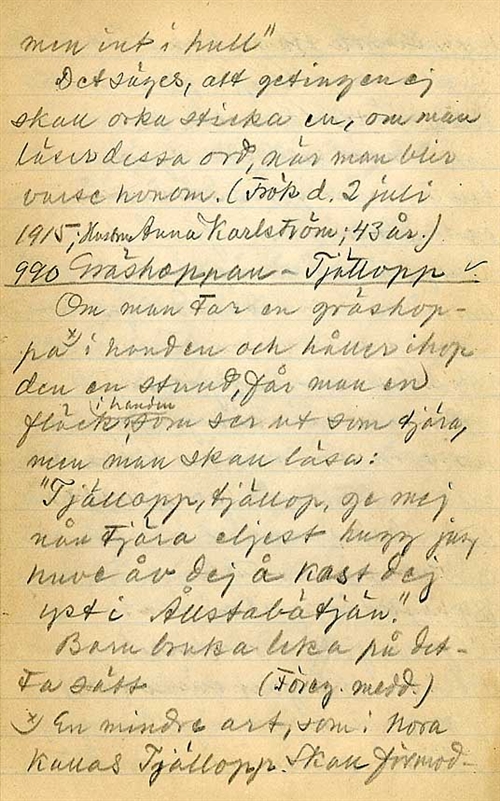 men int i hull"
Det säges, att getingen ej
skall orka sticka en, om man
läser dessa ord, när man blir
varse honom. (Frök d. 2 juli
1915, Hustru Anna Karlström; 43 år.)
990 Gräshoppan – Tjällopp
Om man tar en gräshop-
pa x) i handen och håller ihop
den en stund, får man en
fläck i handen, som ser ut som tjära,
men man skall läsa:
"Tjällopp, tjällop, ge mej
nån tjära eljest hugg jag
huve åv dej å kast dej
yst i Ållstabätjän."
Barn bruka leka på det-
ta sätt (Föreg. medd.)
x) En mindre art, som i Nora
kallas Tjällopp. Skall förmod-